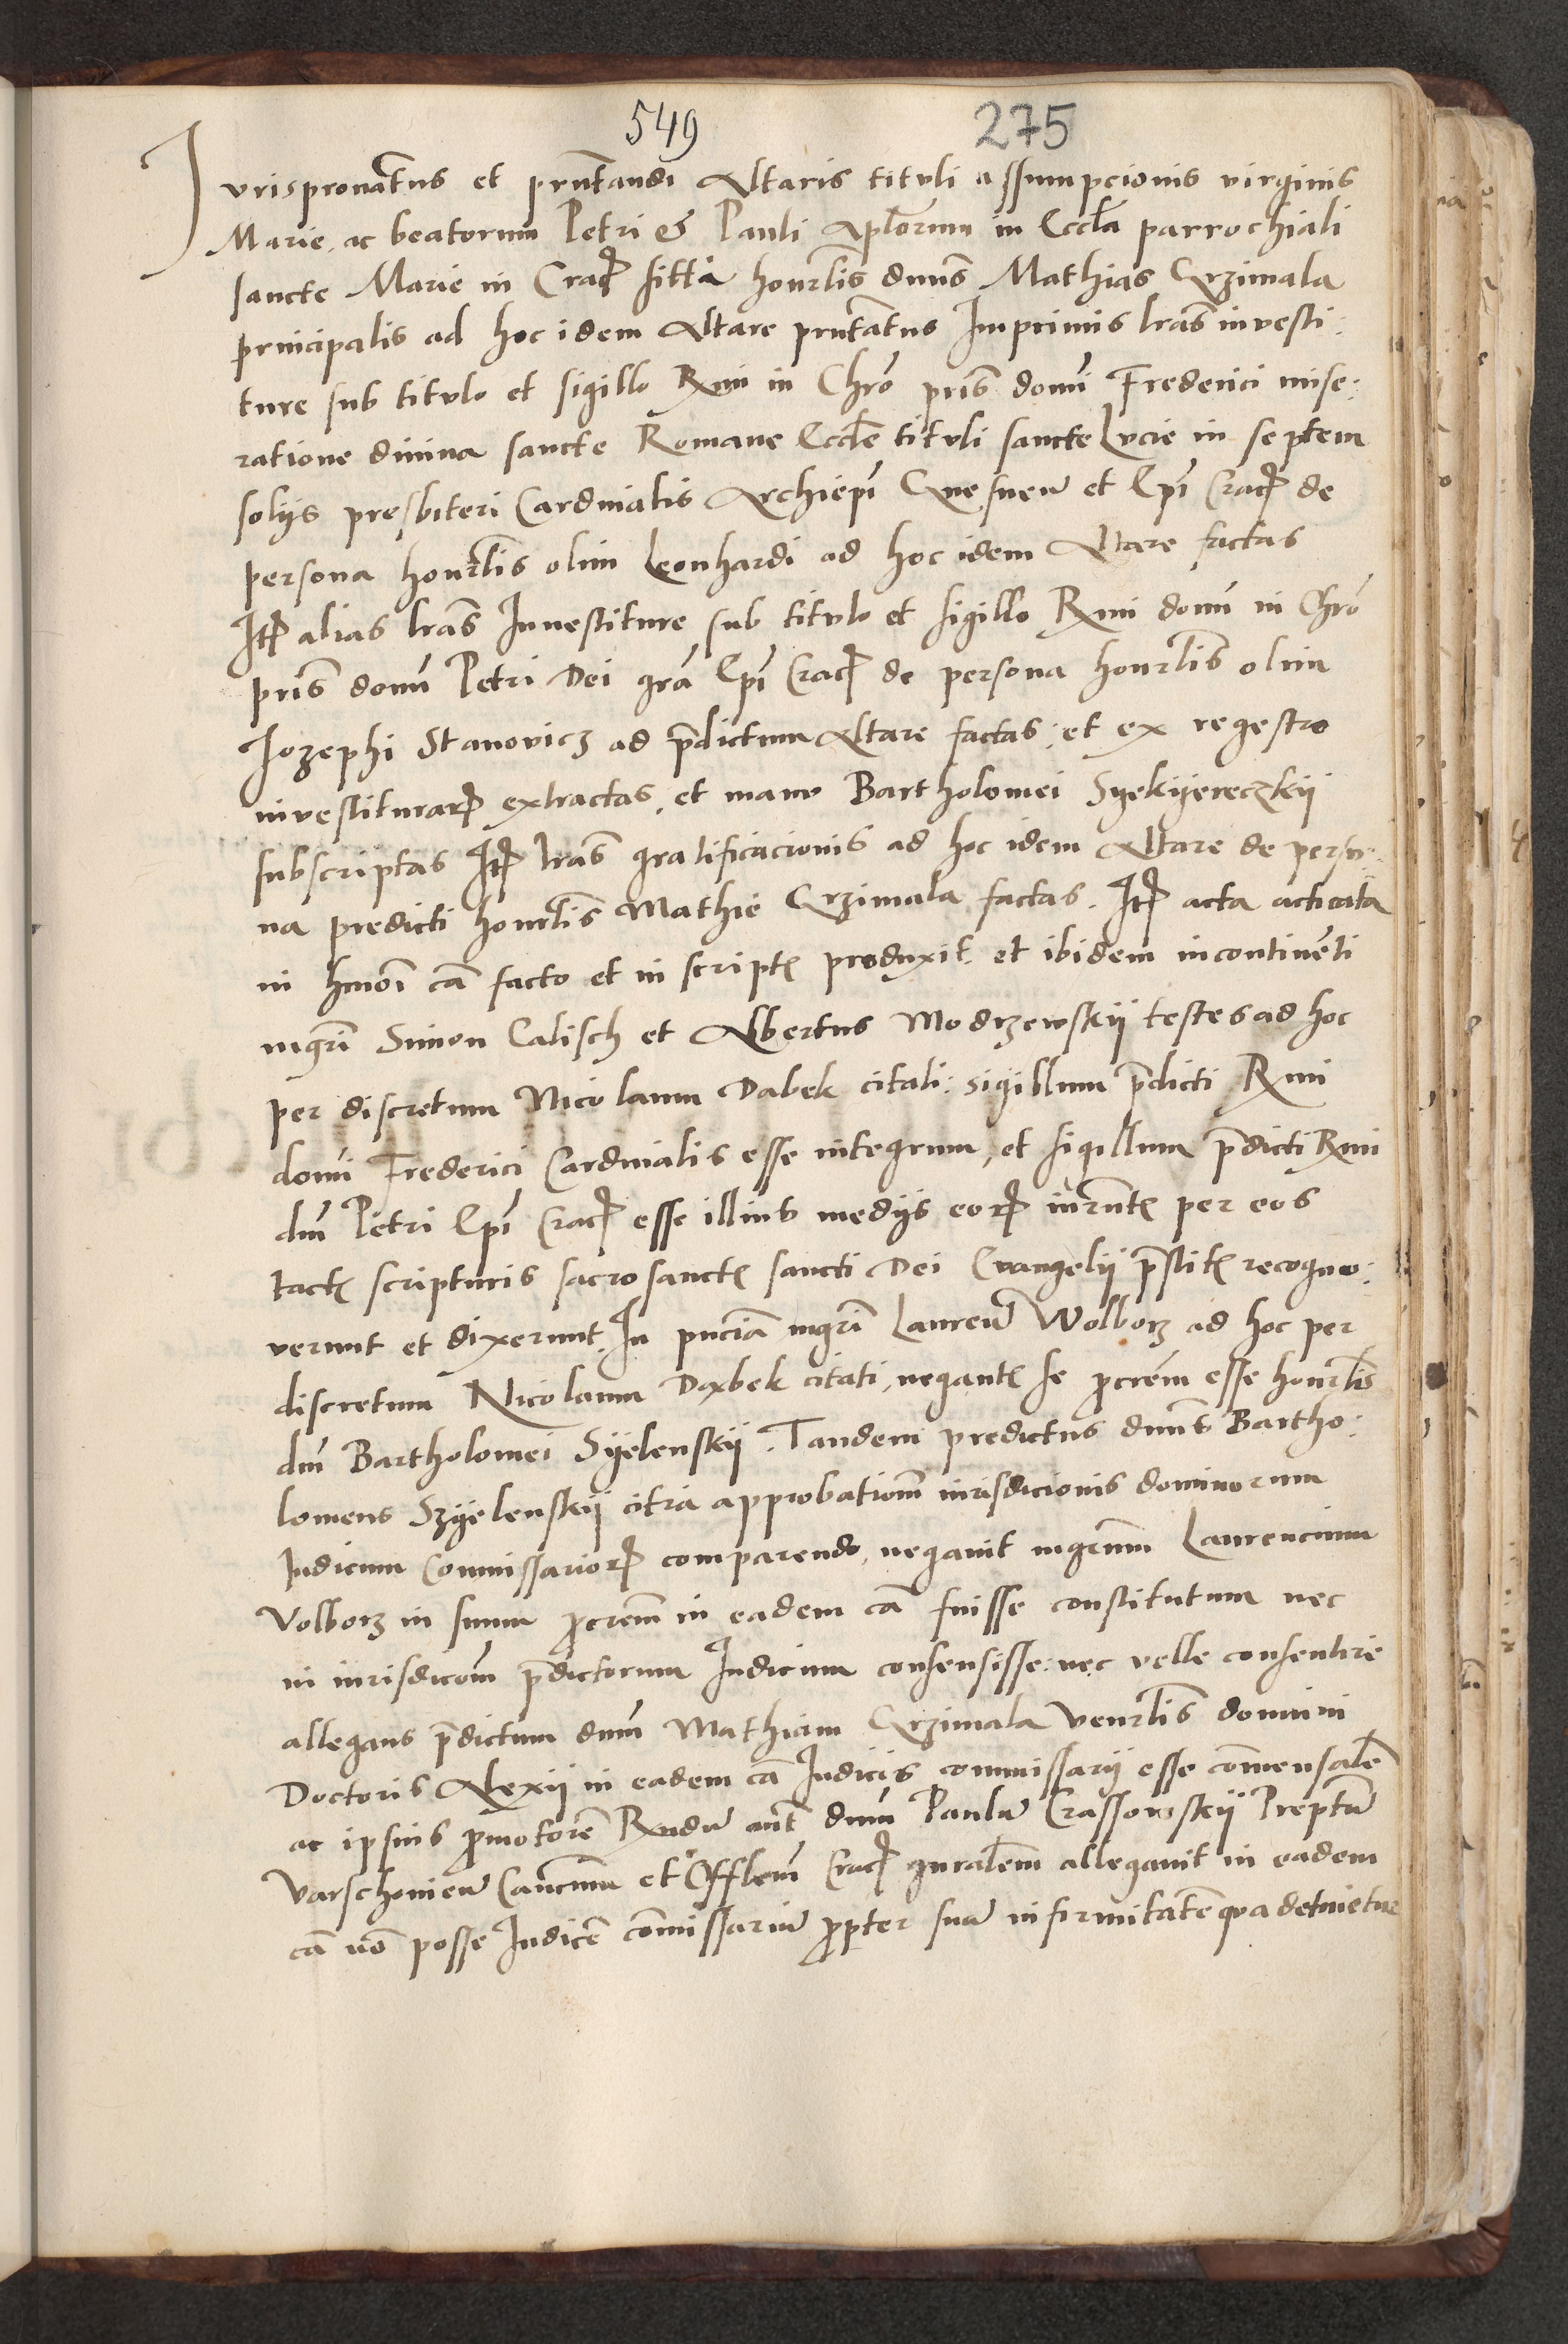 549 275
Jurispronatus et pntandi Altaris tituli assumpcionis virginis
Marie, ac beatorum Petri & Pauli Aplorum in Eccla parrochiali
sancte Marie in Crac sitta honrlis dnus Mathias Grzimala
principalis ad hoc idem Altare pntatus Imprimis lras investi:
ture sub titulo et sigillo Rmi in Chro pris domi Frederici mise:
ratione divina sancte Romane Eccle tituli sancte Lucie in septem
soliis presbiteri Cardinalis Archiepi Gnesnen et Epi Crac de
persona honrlis olim Leonhardi ad hoc idem Altare factas
Ite alias lras Investiture sub titulo et sigillo Rmi domi in Chro
pris domi Petri Dei gra Epi Crac de persona honrlis olim
Jozephi Stanovicz ad pdictum Altare factas, et ex regestro
investiturar extractas, et manu Bartholomei Syekyereczkij
subscriptas Ite lras gratificacionis ad hoc idem Altare de perso:
na predicti honrlis Mathie Grzimala factas. Ite acta acticata
in hmoi ca facto et in script produxit et ibidem incontineti
mgri Simon Calisch et Albertus Modrzewskij testes ad hoc
per discretum Nicolaum Dabek citati: sigillum pdicti Rmi
domi Frederici Cardinalis esse integrum, et sigillum pdicti Rmi
dni Petri Epi Crac esse illius mediis eor iurnt per eos
tact scripturis sacrosanct sancti Dei Evangelii pstit recogno:
verunt et dixerunt. In pncia mgri Lauren Wolborz ad hoc per
discretum Nicolaum Daxbek citati, negant se procrem esse honrlis
dni Bartholomei Syelenskij. Tandem predictus dnus Bartho:
lomeus Szyelenskij citra approbationm iurisdicionis dominorum
Judicum Commissarior comparendo, negavit mgrum Laurencium
Volborz in suum procrem in eadem ca fuisse constitutum nec
in iurisdicom pdictorum Judicum consensisse: nec velle consentire
allegans pdictum dnum Mathiam Grzimala venrlis domini
Doctoris Alexii in eadem ca Judicis commissarii esse comensale
ac ipsius promotore Rndu aut dnum Paulu Crassowskij Preptu
Varschonien Cancrum et Offlem Crac gnralem allegavit in eadem
ca no posse Judice comissariu propter sua infirmitate qua detinetur